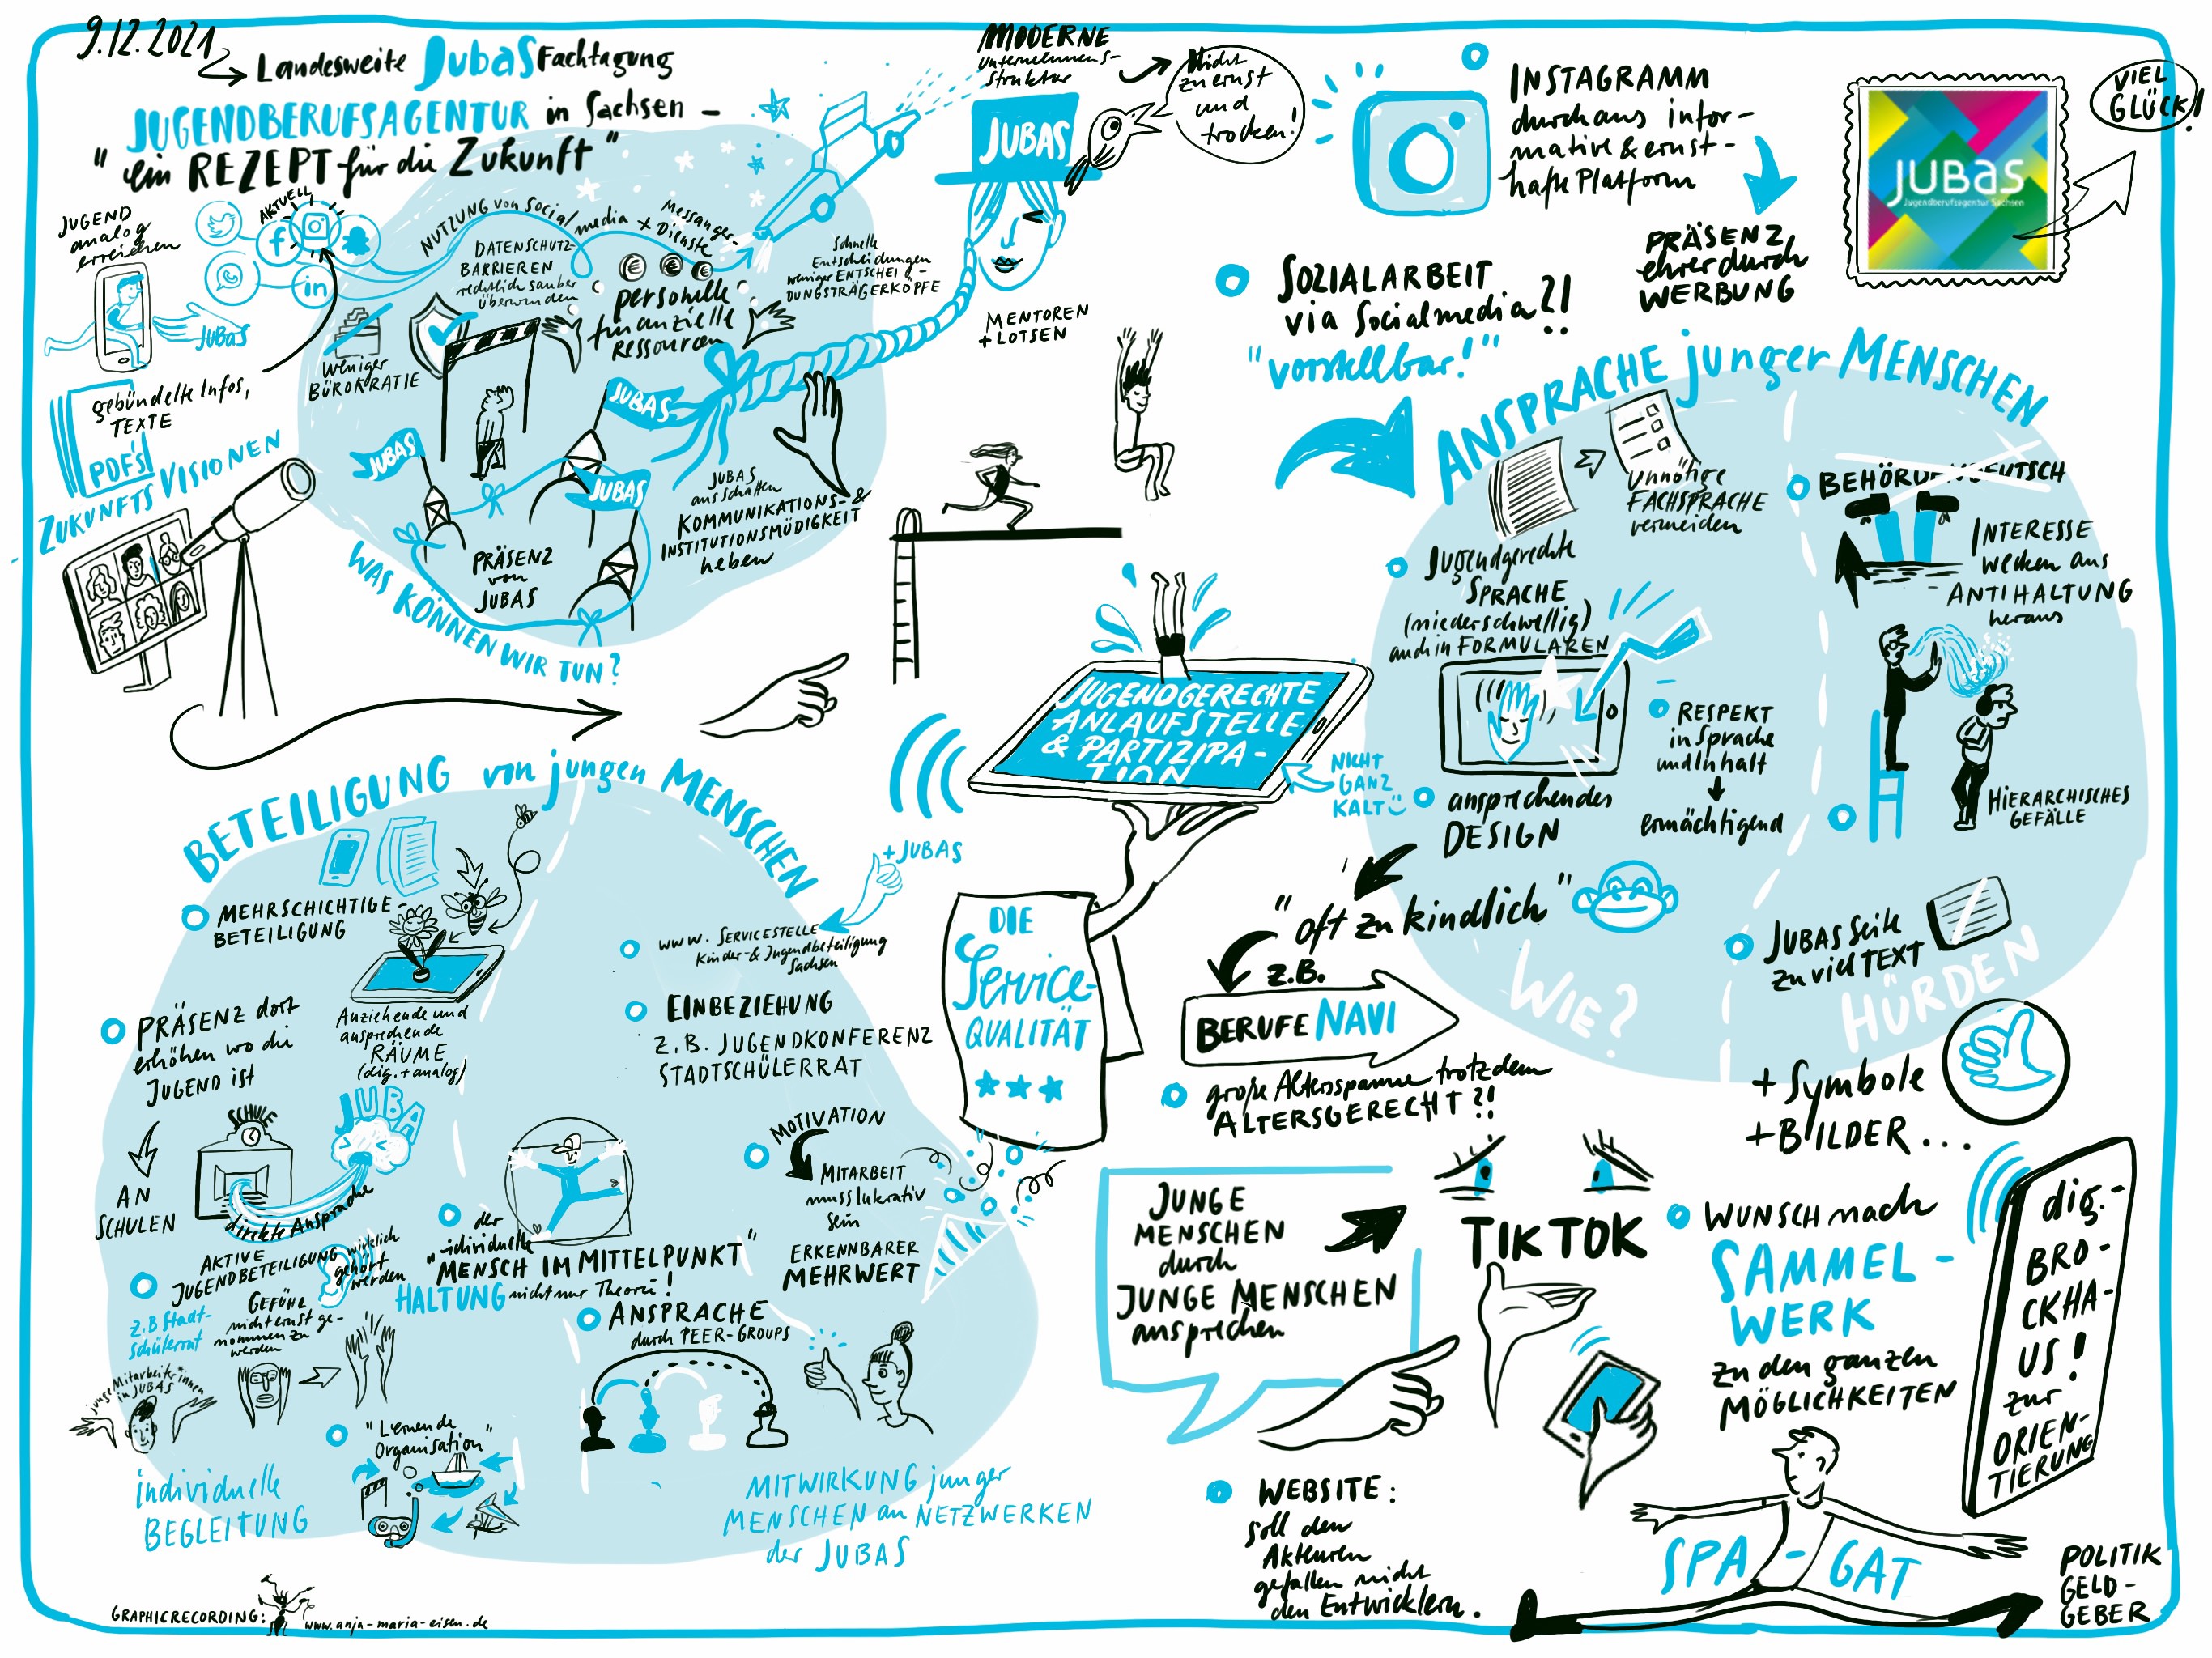 9.12.2021
Landesweite JubaS Fachtagung
JUGENDBERUFSAGENTUR in Sachsen –
"ein REZEPT für die Zukunft"
JUGEND
analog
erreichen
AKTUELL
f
in
JUBAS
gebündelte Infos,
TEXTE
PDF's!
ZUKUNFTSVISIONEN
NUTZUNG von Social media + Messanger-
Dienste
DATENSCHUTZ-
BARRIEREN
rechtlich sauber
überwinden
weniger
BÜROKRATIE
€ € €
personelle
finanzielle
Ressourcen
Schnelle
Entscheidungen
weniger ENTSCHEI-
DUNGSTRÄGERKÖPFE
JUBAS
JUBAS
JUBAS
PRÄSENZ
von
JUBAS
JUBAS
ausschatten
KOMMUNIKATIONS- &
INSTITUTIONSMÜDIGKEIT
heben
WAS KÖNNEN WIR TUN?
MODERNE
Unternehmens-
struktur
Nicht
zu ernst
und
trocken!
JUBAS
MENTOREN
+ LOTSEN
INSTAGRAMM
durchaus infor-
mative & ernst-
hafte Platform
PRÄSENZ
eher durch
WERBUNG
JUBAS
Jugendberufsagentur Sachsen
VIEL
GLÜCK!
SOZIALARBEIT
via Socialmedia?!
"vorstellbar!"
ANSPRACHE junger MENSCHEN
Unnötige
FACHSPRACHE
vermeiden
Jugendgerechte
SPRACHE
(niederschwellig)
auch in FORMULAREN
RESPEKT
in Sprache
und Inhalt
ermächtigend
ansprechendes
DESIGN
"oft zu kindlich"
z.B.
BERUFE NAVI
WIE?
BEHÖRDENDEUTSCH
INTERESSE
wecken aus
ANTIHALTUNG
heraus
HIERARCHISCHES
GEFÄLLE
JUBAS Seite
zu viel TEXT
HÜRDEN
+ Symbole
+ BILDER...
große Altersspanne trotzdem
ALTERSGERECHT?!
JUGENDGERECHTE
ANLAUFSTELLE
& PARTIZIPA-
TION
NICHT
GANZ
KALT
DIE
Service-
QUALITÄT
BETEILIGUNG von jungen MENSCHEN
MEHRSCHICHTIGE-
BETEILIGUNG
Anziehende und
ansprechende
RÄUME
(dig. + analog)
PRÄSENZ dort
erhöhen wo die
JUGEND ist
AN
SCHULEN
SCHULE
JUBA
direkte Ansprache
AKTIVE
JUGENDBETEILIGUNG
wirklich
gehört
werden
z.B Stadt-
schülerrat
GEFÜHL
nicht ernst ge-
nommen zu
werden
junge Mitarbeiter*innen
in JUBAS
"Lernende
Organisation"
individuelle
BEGLEITUNG
+ JUBAS
www. SERVICESTELLE
Kinder- & Jugendbeteiligung
Sachsen
EINBEZIEHUNG
Z.B. JUGENDKONFERENZ
STADTSCHÜLERRAT
MOTIVATION
MITARBEIT
muss lukrativ
sein
ERKENNBARER
MEHRWERT
der
"individuelle
MENSCH IM MITTELPUNKT"
HALTUNG nicht nur Theorie!
ANSPRACHE
durch PEER-GROUPS
MITWIRKUNG junger
MENSCHEN an NETZWERKEN
der JUBAS
JUNGE
MENSCHEN
durch
JUNGE MENSCHEN
ansprechen
TIKTOK
WUNSCH nach
SAMMEL-
WERK
zu den ganzen
MÖGLICHKEITEN
dig.-
BRO-
CKHA-
US!
zur
ORIEN-
TIERUNG
WEBSITE:
soll den
Akteuren
gefallen nicht
den Entwicklern.
SPA-GAT
POLITIK
GELD-
GEBER
GRAPHICRECORDING:
www.anja-maria-eisen.de